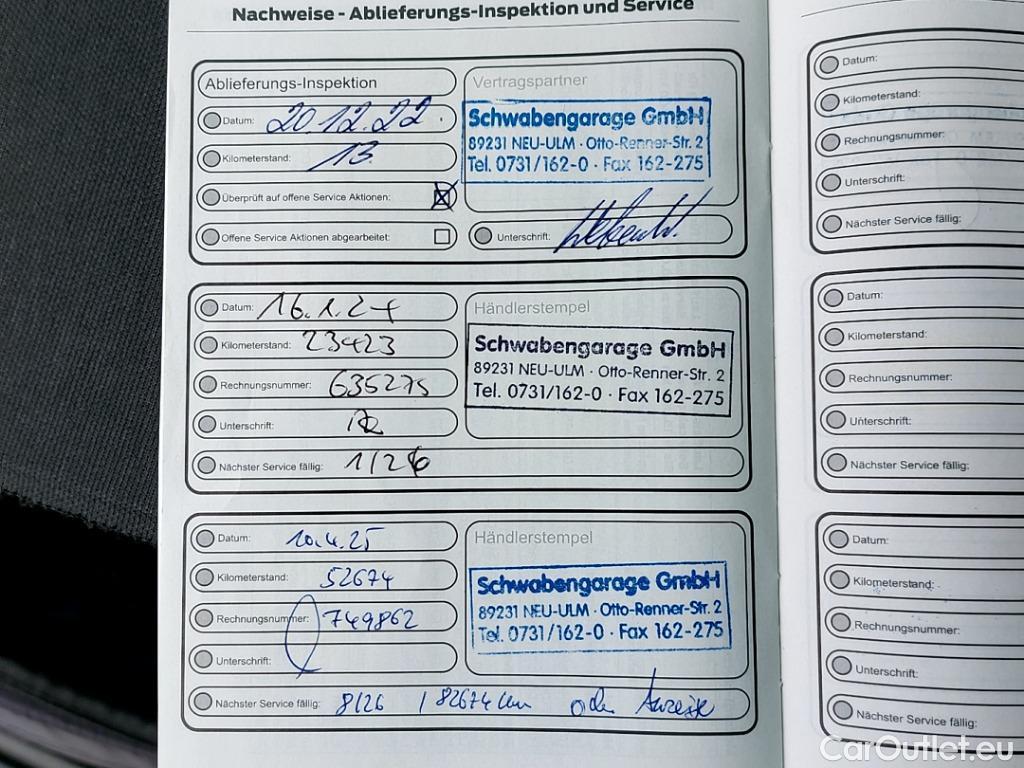 Nachweise - Ablieferungs-Inspektion und Service
Ablieferungs-Inspektion
Datum: 20.12.22.
Kilometerstand: 13
Überprüft auf offene Service Aktionen:
Offene Service Aktionen abgearbeitet:
Vertragspartner
Schwabengarage GmbH
89231 NEU-ULM · Otto-Renner-Str. 2
Tel. 0731/162-0 · Fax 162-275
Unterschrift:
Datum: 16.1.24
Kilometerstand: 23423
Rechnungsnummer: 635275
Unterschrift:
Nächster Service fällig: 1/26
Händlerstempel
Schwabengarage GmbH
89231 NEU-ULM · Otto-Renner-Str. 2
Tel. 0731/162-0 · Fax 162-275
Datum: 10.4.25
Kilometerstand: 52674
Rechnungsnummer: 749862
Unterschrift:
Nächster Service fällig: 8/26 / 82674 km oder Anzeige
Händlerstempel
Schwabengarage GmbH
89231 NEU-ULM · Otto-Renner-Str. 2
Tel. 0731/162-0 · Fax 162-275
Datum:
Kilometerstand:
Rechnungsnummer:
Unterschrift:
Nächster Service fällig:
Datum:
Kilometerstand:
Rechnungsnummer:
Unterschrift:
Nächster Service fällig:
Datum:
Kilometerstand:
Rechnungsnummer:
Unterschrift:
Nächster Service fällig:
CarOutlet.eu